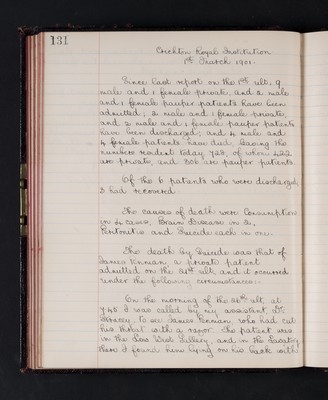 131
Crichton Royal Institution
1st March 1901.
Since last report on the 1st ult, 9
male and 1 female private, and 2 male
and 1 female pauper patients have been
admitted; 2 male and 1 female private,
and 2 male and 1 female pauper patients
have been discharged; and 4 male and
4 female patients have died, leaving the
numbers resident today 728, of whom 422
are private, and 306 are pauper patients.
Of the 6 patients who were discharged,
3 had recovered
The causes of death were Consumption
in 4 cases, Brain Disease in 2,
Peritonitis and Suicide each in one.
The death by Suicide was that of
James, a private patient
admitted on the ult, and it occurred
under the following circumstances:-
On the morning of the ult, at
7.45 I was called by my assistant, Dr.
to see James, who had cut
his throat with a razor. The patient was
in the Low West Gallery, and in the lavatory
there I found him lying on his back with